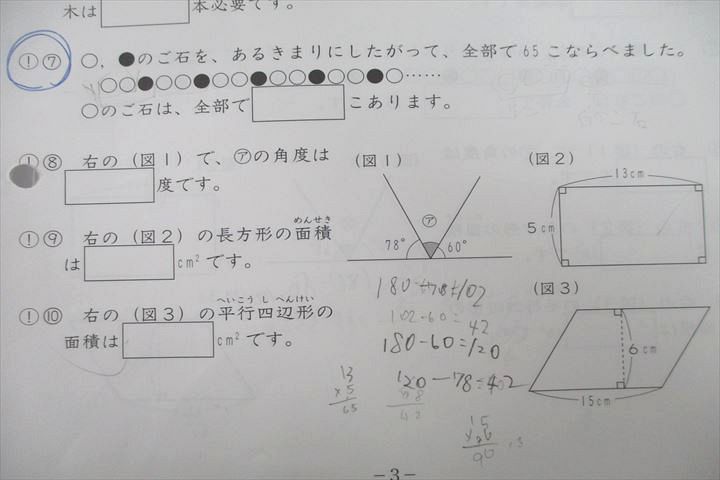 木は 本必要です。
①⑦ ○，●のご石を、あるきまりにしたがって、全部で65こならべました。
○○●○○●○○●○○●○○●○……
○のご石は、全部で こあります。
①⑧ 右の（図1）で、㋐の角度は
度です。
①⑨ 右の（図2）の長方形の面積
めんせき
は cm²です。
①⑩ 右の（図3）の平行四辺形の
へいこうしへんけい
面積は cm²です。
（図1）
㋐
78° 60°
（図2）
13cm
5cm
（図3）
6cm
15cm
102-60=42
180-60=120
120-78=42
13
×5
65
15
90
-3-